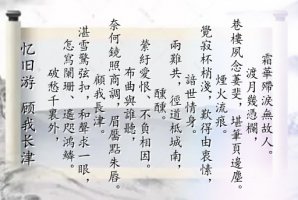 霜華帶淚無故人。
渡月幾憑欄，
巷樓夙念萋斐，堪筆頁邊塵。
煙火流痕。
覺寂杯梢淺，歎得由衷愫，
諳世情身。
兩難共，徑道柢城南，
醺醺。
縈紆愛恨、不負相因。
布曲與誰聽，
顧我長津。
奈何鏡照商調，眉黶點朱唇。
湛雪驚弦扣，和聲求一眼，
怎寫闌珊、遙咫鴻鱗。
破愁千裏外，
忆旧游 顾我长津